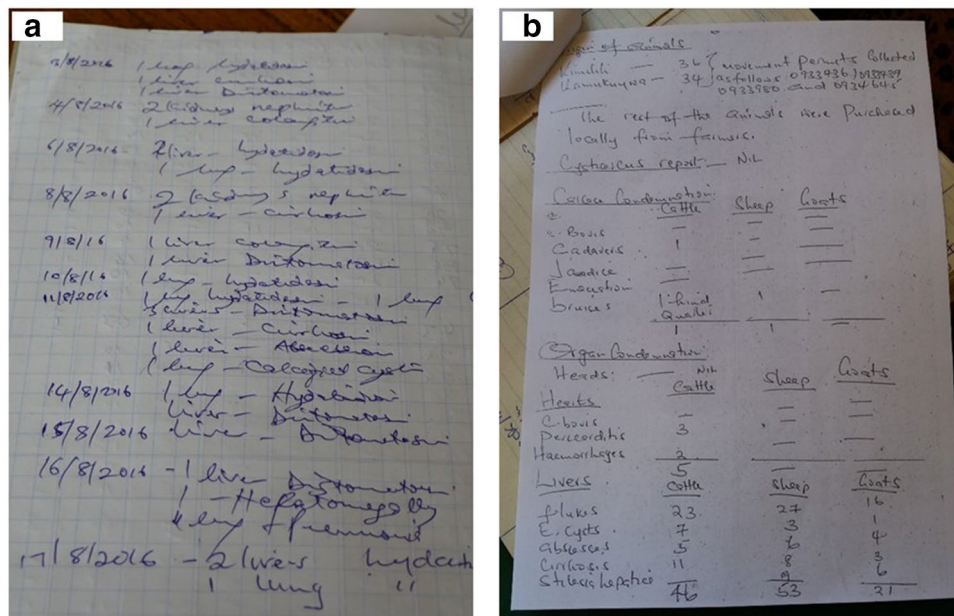 a
3/8/2016 1 lung hydatidosi
1 liver cirrhosi
1 liver Distomatosi
4/8/2016 2 kidney nephriti
1 liver
6/8/2016 2 liver - hydatidosi
1 lung - hydatidosi
8/8/2016 2 kidneys nephriti
1 liver - cirrhosi
9/8/16 1 liver
1 liver Distomatosi
10/8/16 1 lung - hydatidosi
11/8/2016 1 lung hydatidosi - 1 lung
3 livers - Distomatosi
1 liver - Cirrhosi
1 liver -
1 lung - Calcified Cysti
14/8/2016 1 lung - Hydatidosi
liver - Distomatosi
15/8/2016 liver - Distomatosi
16/8/2016 - 1 liver Distomatosi
1 - Hepatomegally
lung + Pneumoni
17/8/2016 - 2 livers hydati
1 lung "
b
Origin of animals
Kimilili — 36 movement permits Collected
Kamukuywa — 34 as follows 0933936, 0933939
0933980 and 0934645
The rest of the animals were Purchased
locally from farmers.
Cysticercus report — Nil
Carcase Condemnation
Cattle Sheep Goats
C. Bovis — — —
Cadavers 1 — —
Jaundice — — —
Emaciation — — —
bruises 1-hind 1 —
Quarter
1 1 —
Organ Condemnation
Heads: — Nil
Cattle Sheep Goats
Hearts
C-bovis — — —
Pericarditis 3 — —
Haemorrhages 2 — —
5 — —
Livers Cattle Sheep Goats
flukes 23 27 16
E. Cysts 7 3 1
Abscesses 5 6 4
Cirrhosis 11 8 3
Stilesia hepatica 9 6
46 53 21